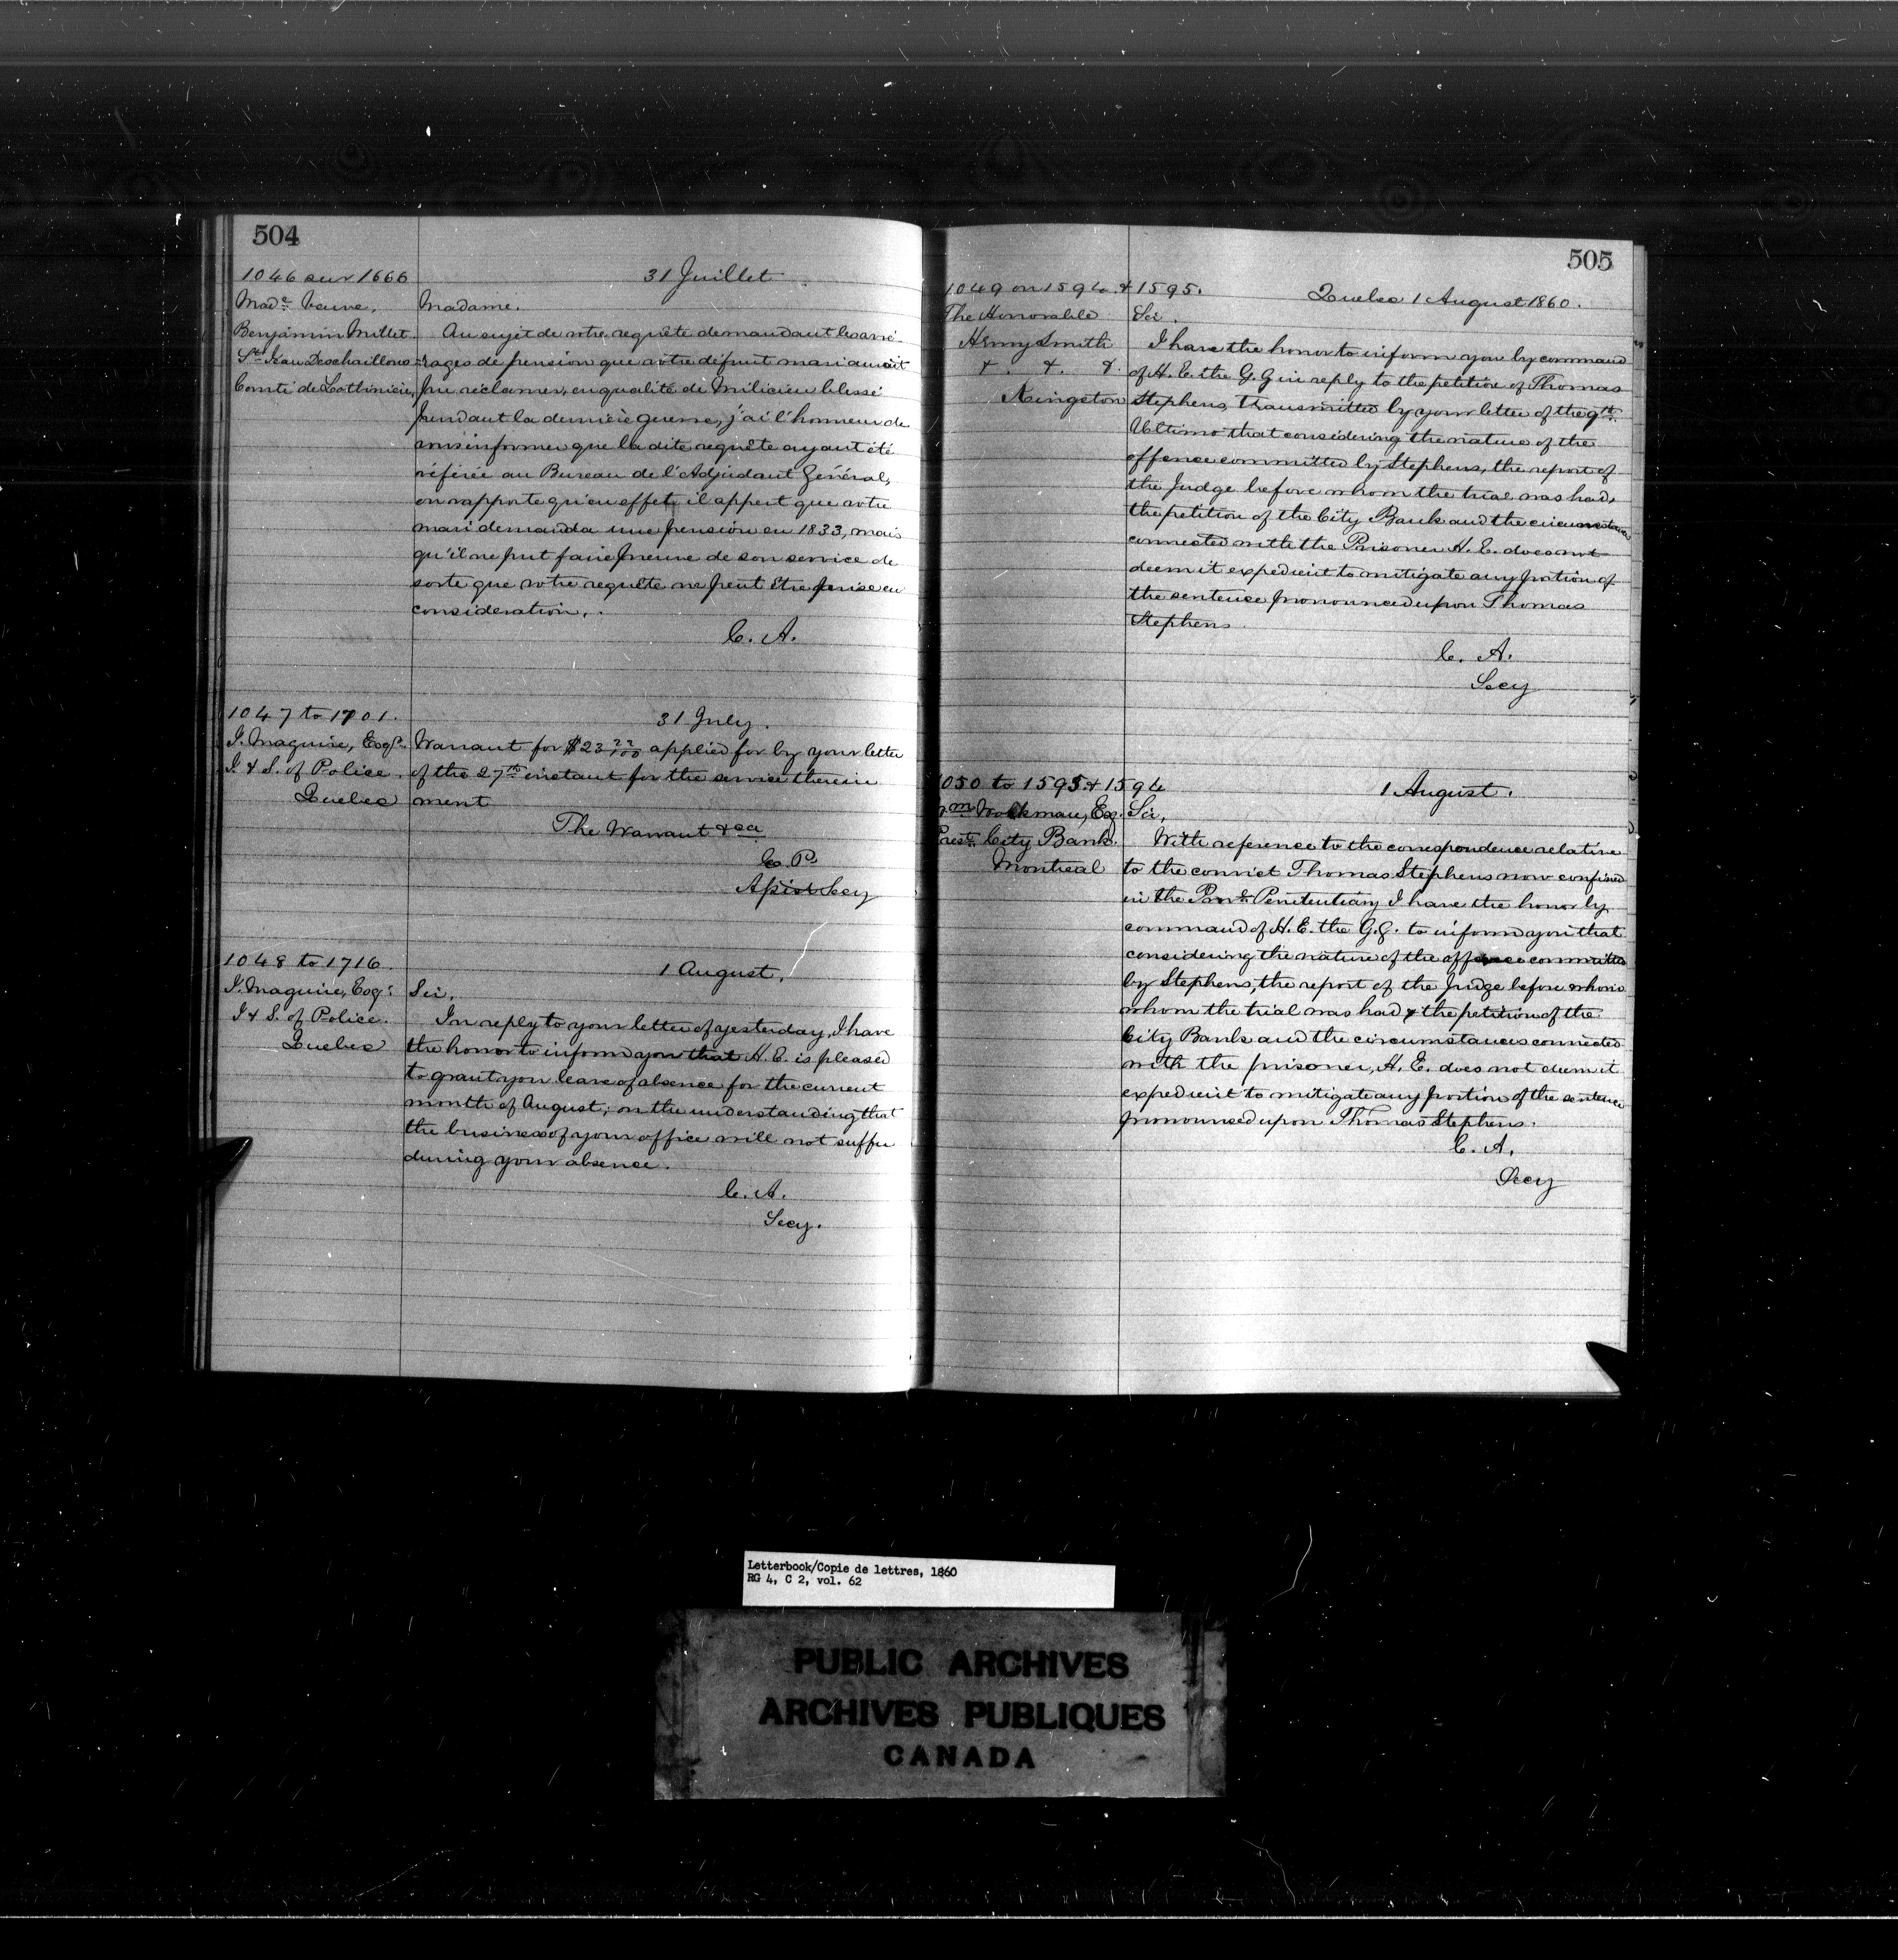 504
1046 sur 1666
31 Juillet
Made Veuve,
Benjamin Millet.
St Jean Deschaillons
Comté de Lotbinière,
Madame.
Au sujet de votre requête demandant les arré-
-rages de pension que votre défunt mari auroit
pu réclamer, en qualité de Milicien blessé
pendant la dernière guerre, j'ai l'honneur de
vous informer que la dite requête ayant été
référée au Bureau de l'Adjudant Général,
on rapporte qu'en effet il appert que votre
mari demanda une pension en 1833, mais
qu'il ne put faire preuve de son service de
sorte que votre requête ne peut être prise en
consideration.
C. A.
1047 to 1701.
31 July.
J. Maguire, Esqr.
I. & S. of Police.
Quebec
Warrant for $23 22/100 applied for by your letter
of the 27th instant for the service therein
ment
The Warrant &ca
E. P.
Assist Secy
1048 to 1716.
1 August,
J. Maguire, Esqr
I & S. of Police.
Quebec
Sir,
In reply to your letter of yesterday, I have
the honor to inform you that H. E. is pleased
to grant you leave of absence for the current
month of August; on the understanding that
the business of your office will not suffer
during your absence.
C. A.
Secy.
505
1049 on 1594 & 1595.
Quebec 1 August 1860.
The Honorable
Henry Smith
&. &. &.
Kingston
Sir.
I have the honor to inform you by command
of H. E. the G. G in reply to the petition of Thomas
Stephens, transmitted by your letter of the 9th
Ultimo that considering the nature of the
offence committed by Stephens, the report of
the Judge before whom the trial was had,
the petition of the City Bank and the circumstances
connected with the Prisoner H. E. does not
deem it expedient to mitigate any portion of
the sentence pronounced upon Thomas
Stephens.
C. A.
Secy
1050 to 1595 & 1594
1 August.
Wm Workman, Esq.
Prest. City Bank.
Montreal
Sir,
With reference to the correspondence relative
to the convict Thomas Stephens now confined
in the Provl Penitentiary I have the honor by
command of H. E. the G. G. to inform you that
considering the nature of the offence committed
by Stephens, the report of the Judge before whom
whom the trial was had & the petition of the
City Bank and the circumstances connected
with the prisoner, H. E. does not deem it
expedient to mitigate any portion of the sentence
pronounced upon Thomas Stephens.
C. A.
Secy
Letterbook/Copie de lettres, 1860
RG 4, C 2, vol. 62
PUBLIC ARCHIVES
ARCHIVES PUBLIQUES
CANADA